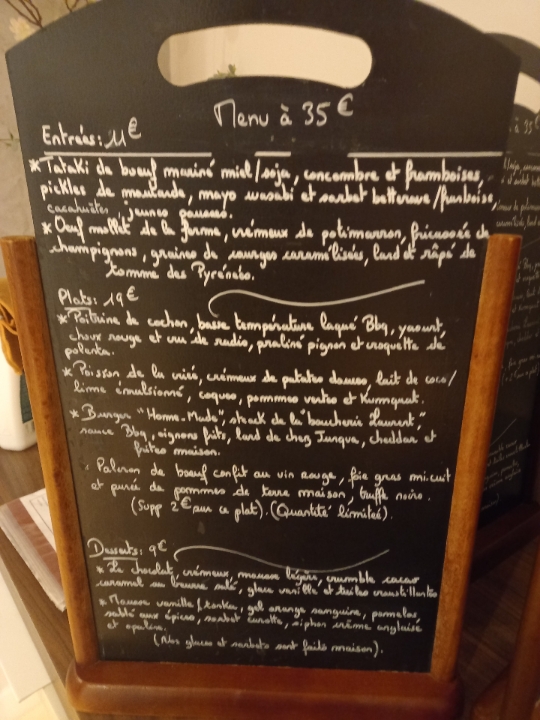 Menu à 35 €
Entrées: 11€
* Tataki de bœuf mariné miel/soja, concombre et framboises,
pickles de moutarde, mayo wasabi et sorbet betterave/framboise,
cacahuètes jeunes pousses.
* Oeuf mollet de la ferme, crémeux de potimarron, fricassée de
champignons, graines de courges caramélisées, lard et râpé de
tomme des Pyrénées.
Plats: 19€
* Poitrine de cochon, basse température laqué Bbq, yaourt,
choux rouge et cru de radis, praliné pignon et croquette de
polenta.
* Poisson de la criée, crémeux de patates douces lait de coco/
lime émulsionné, coques, pommes vertes et Kumquat.
* Burger "Home-Made", steack de la "boucherie Laurent",
sauce Bbq, oignons frits, lard de chez Junqua, cheddar et
frites maison.
Paleron de bœuf confit au vin rouge, foie gras mi.cuit
et purée de pommes de terre maison, truffe noire.
(Supp 2€ sur ce plat). (Quantité limitée).
Desserts: 9€
* Le chocolat, crémeux, mousse légère, crumble cacao
caramel au beurre salé, glace vanille et tuiles croustillantes
* Mousse vanille/tonka, gel orange sanguine, pomelos
sablé aux épices, sorbet carotte, siphon crème anglaise
et opaline.
(Nos glaces et sorbets sont faits maison).